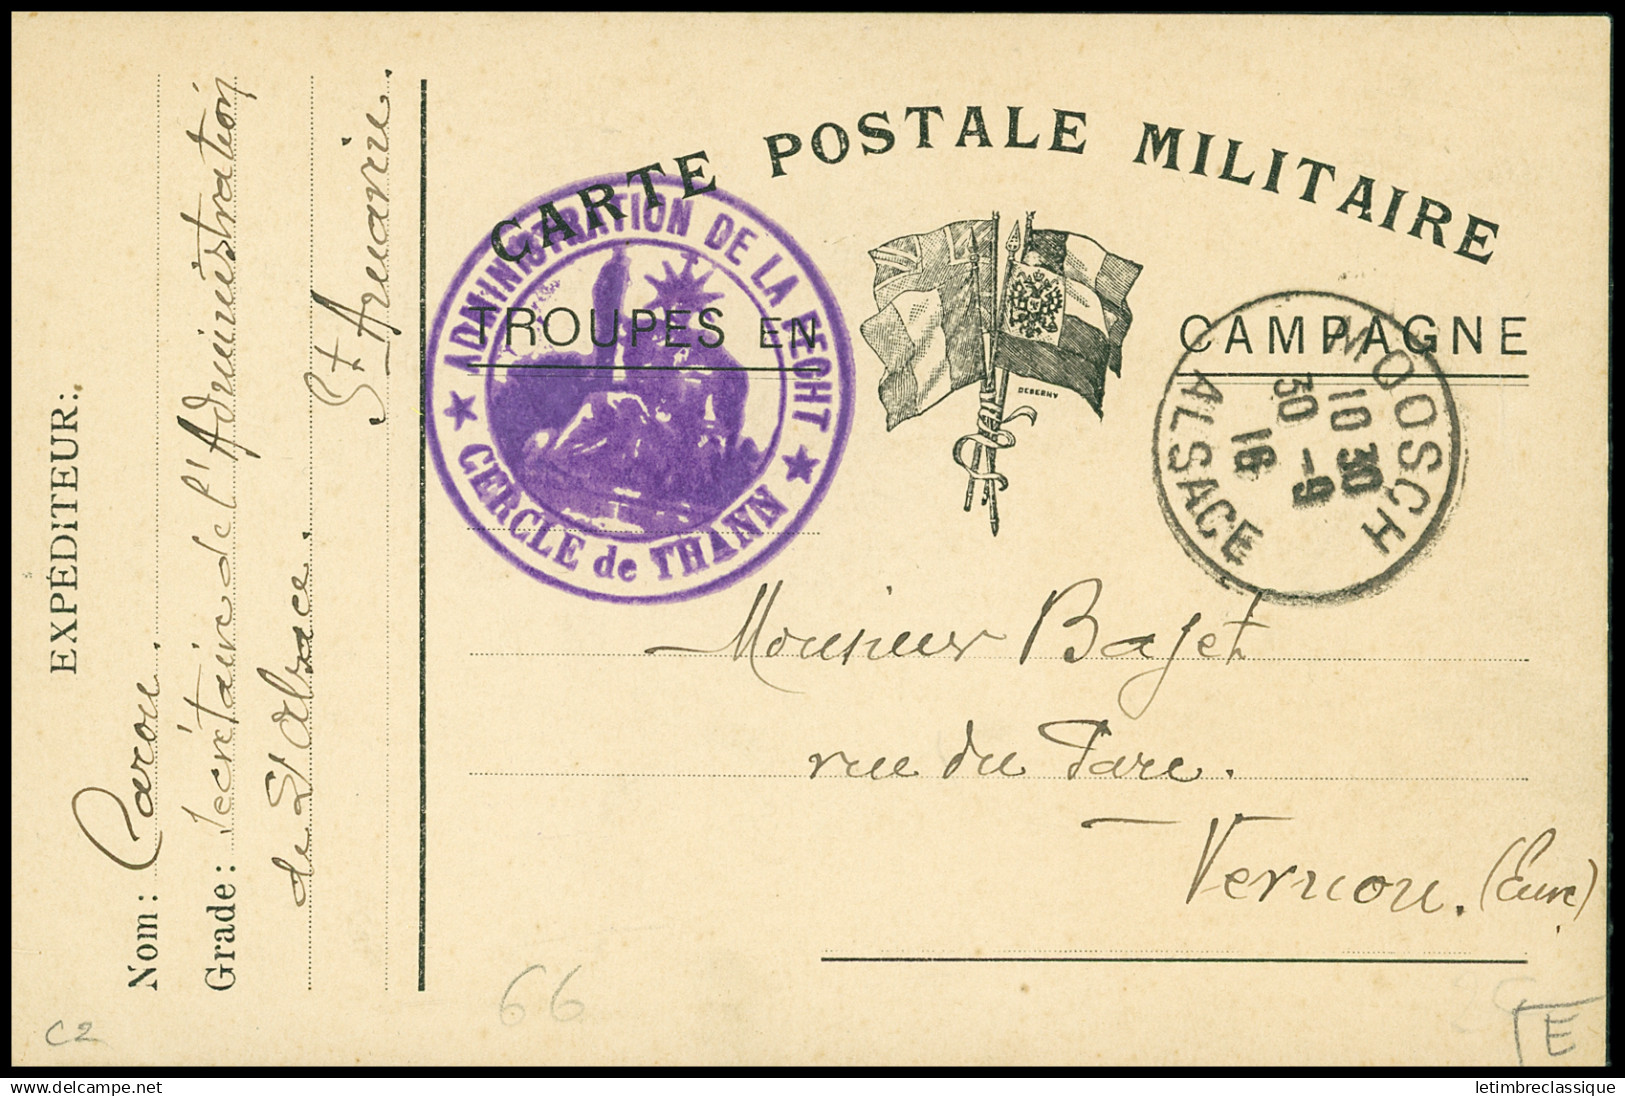 CARTE POSTALE MILITAIRE
TROUPES EN CAMPAGNE
DEBERNY
★ ADMINISTRATION DE LA RECHT ★
CERCLE de THANN
MOOSCH
10 30
30 -9
16
ALSACE
Monsieur Bajet
rue du Parc.
Vernon. (Eure)
EXPÉDITEUR:
Nom: Caron.
Grade: Secrétaire de l'Administration
de l'Alsace.
St Amarin.
C2
66
E
delcampe.net
letimbreclassique